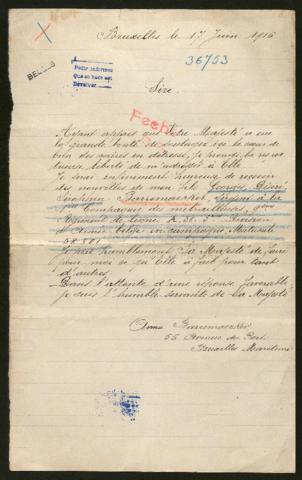 Bruxelles le 17 Juin 1916
36753
BELGES
Pedir informes
Que se hace así
Devolver
Sire,
Fecha
Ayant appris que Votre Majesté a eue
la grande bonté de soulager le cœur de
bien des mères en détresse, je prends la respec-
tueuse liberté de m'adresser à Elle.
Je serai infiniment heureuse de recevoir
des nouvelles de mon fils Georges, Désiré,
Séraphin Barremaecker, Sergent à la
Compagnie mitrailleuse,
Régiment de ligne Division
d'Armée belge en campagne, Matricule
Je prie humblement Sa Majesté de faire
pour moi ce qu'Elle a fait pour tant
d'autres.
Dans l'attente d'une réponse favorable
je suis l'humble servante de Sa Majesté
Anna Barremaecker
55 Avenue du Port
Bruxelles Maritime